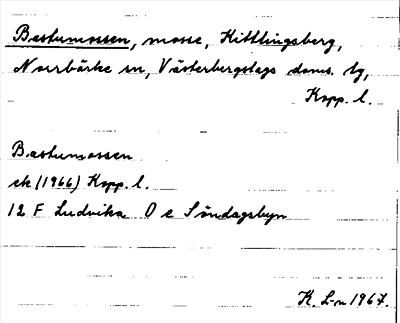 Bastumossen, mosse, Kittlingsberg,
Norrbärke sn, Västerbergslags doms. tg,
Kopp. l.
Bastumossen
ek (1966) Kopp. l.
12 F Ludvika 0 e Söndagsbyn
K. L-n 1967.